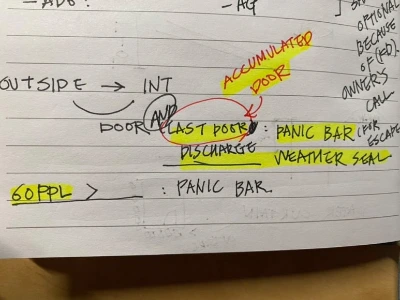 - AG
OPTIONAL
BECAUSE
OF (FD).
OWNER'S
CALL
ACCUMULATED
DOOR
OUTSIDE → INT
DOOR AND (LAST DOOR) : PANIC BAR (FOR
ESCAPE
DISCHARGE WEATHER SEAL
60 PPL > ____ : PANIC BAR.